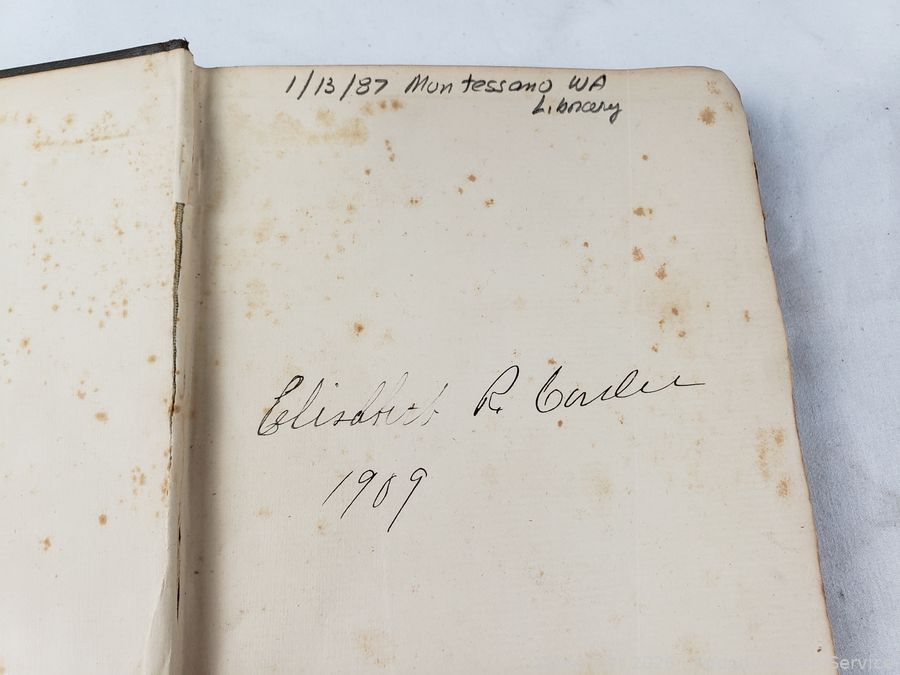 1/13/87 Montessano WA
Library
Elizabeth R.
1909
Service